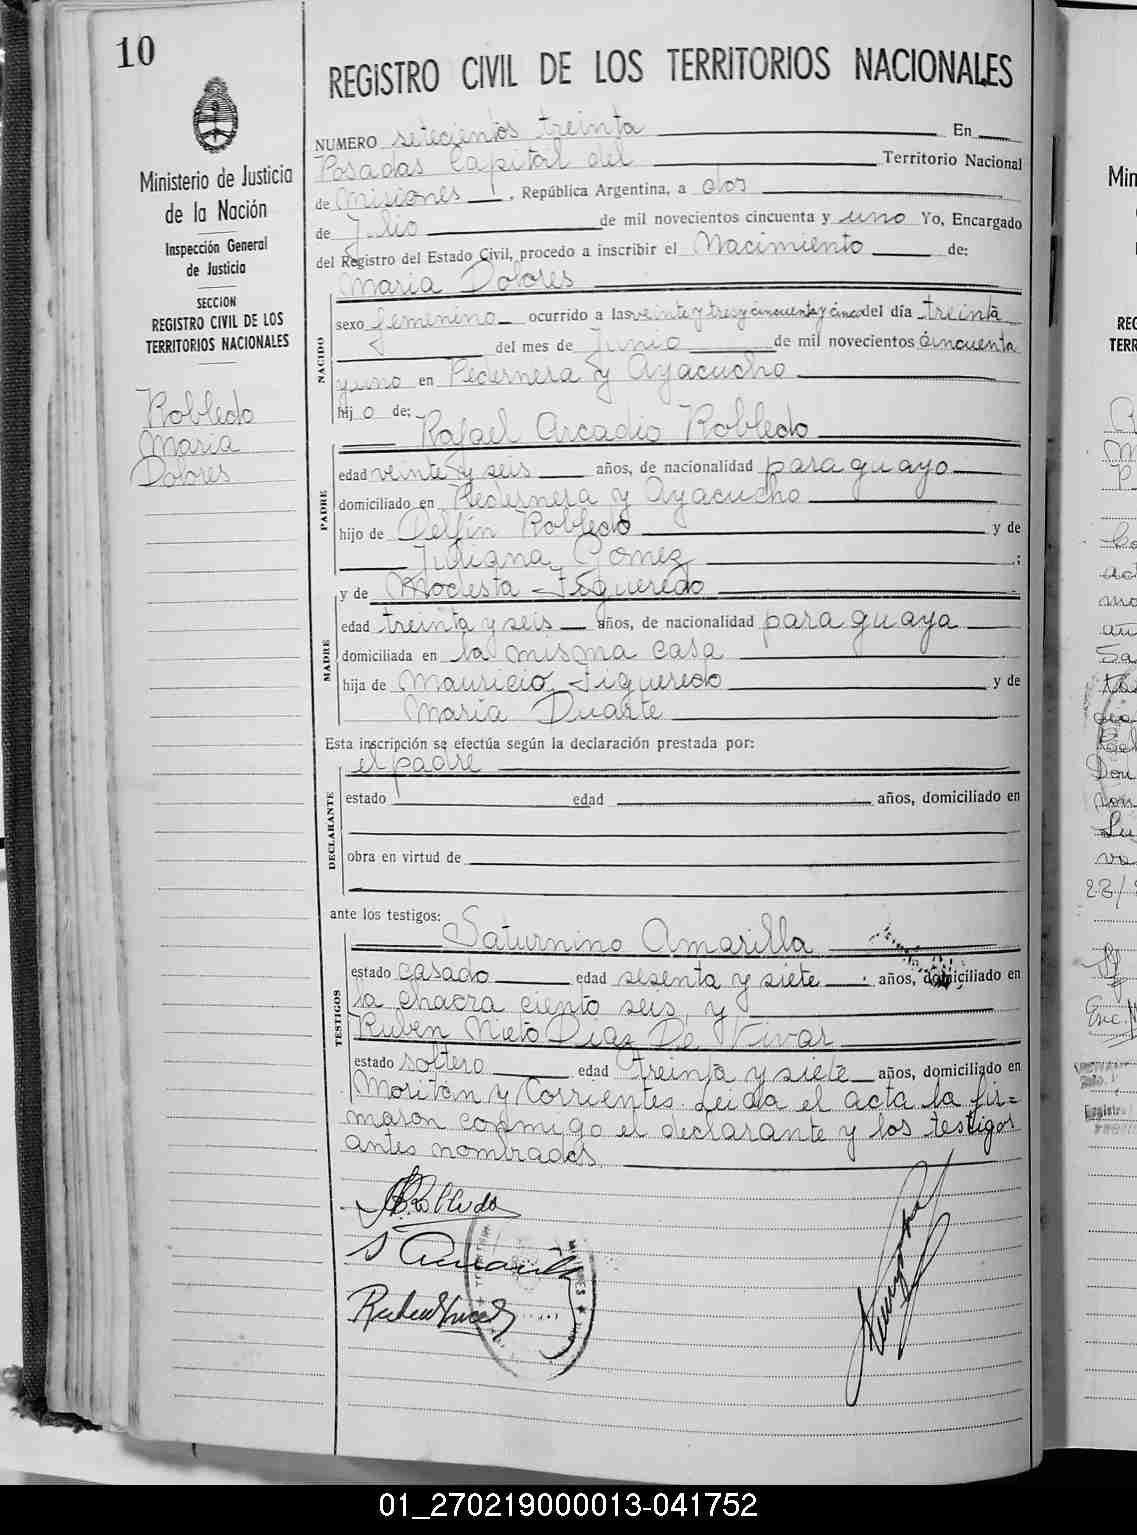 10
Ministerio de Justicia
de la Nación
Inspección General
de Justicia
SECCION
REGISTRO CIVIL DE LOS
TERRITORIOS NACIONALES
Robledo
Maria
Dolores
REGISTRO CIVIL DE LOS TERRITORIOS NACIONALES
NUMERO setecientos treinta En
Posadas Capital del Territorio Nacional
de Misiones, República Argentina, a dos
de Julio de mil novecientos cincuenta y uno Yo, Encargado
del Registro del Estado Civil, procedo a inscribir el Nacimiento de:
Maria Dolores
NACIDO
sexo femenino ocurrido a las veinte y tres y cincuenta y cinco del día treinta
del mes de Junio de mil novecientos cincuenta
y uno en Pedernera y Ayacucho
hij o de:
Rafael Arcadio Robledo
PADRE
edad veinte y seis años, de nacionalidad paraguayo
domiciliado en Pedernera y Ayacucho
hijo de Delfin Robledo y de
Juliana Gomez ;
y de Modesta Figueredo
MADRE
edad treinta y seis años, de nacionalidad paraguaya
domiciliada en la misma casa
hija de Mauricio Figueredo y de
Maria Duarte
Esta inscripción se efectúa según la declaración prestada por:
el padre
DECLARANTE
estado edad años, domiciliado en
obra en virtud de
ante los testigos:
Saturnino Amarilla
TESTIGOS
estado casado edad sesenta y siete años, domiciliado en
la chacra ciento seis, y
Ruben Nieto Diaz De Vivar
estado soltero edad treinta y siete años, domiciliado en
Moritán y Corrientes. Leida el acta la fir=
maron conmigo el declarante y los testigos
antes nombrados
Robledo
S Amarilla
01_270219000013-041752